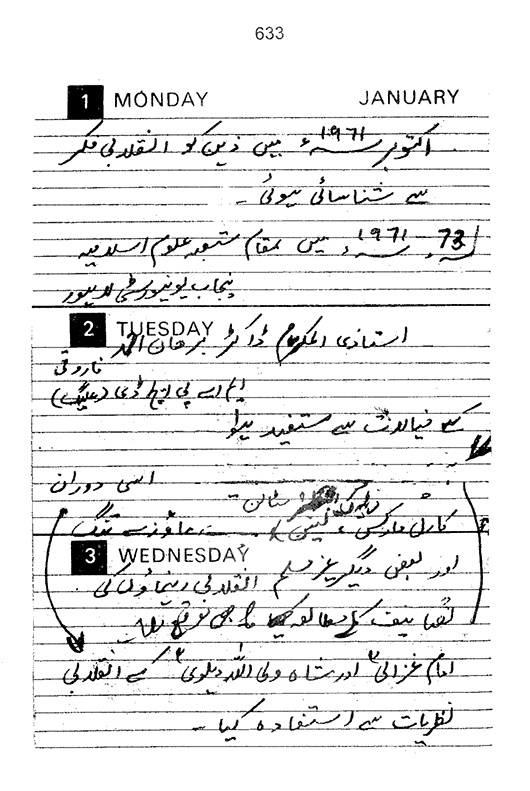 633
1 MONDAY JANUARY
اکتوبر ۱۹۶۱ء میں ذہن کو انقلابی فکر
سے شناسائی ہوئی ۔
73، ۱۹۶۱ء میں بمقام شعبہ علوم اسلامیہ
پنجاب یونیورسٹی لاہور
2 TUESDAY
استاذی المکرم ڈاکٹر برھان احمد
فاروقی
ایم اے پی ایچ ڈی (علیگ)
کے خیالات سے مستفید ہوا
اسی دوران
سٹالن
کارل مارکس، لینن، ماؤزے تنگ
3 WEDNESDAY
اور بعض دیگر غیر مسلم انقلابی رہنماؤں کی
تصانیف کے مطالعہ کا بھی موقع ملا۔
امام غزالی اور شاہ ولی اللہ دہلوی کے انقلابی
نظریات سے استفادہ کیا ۔